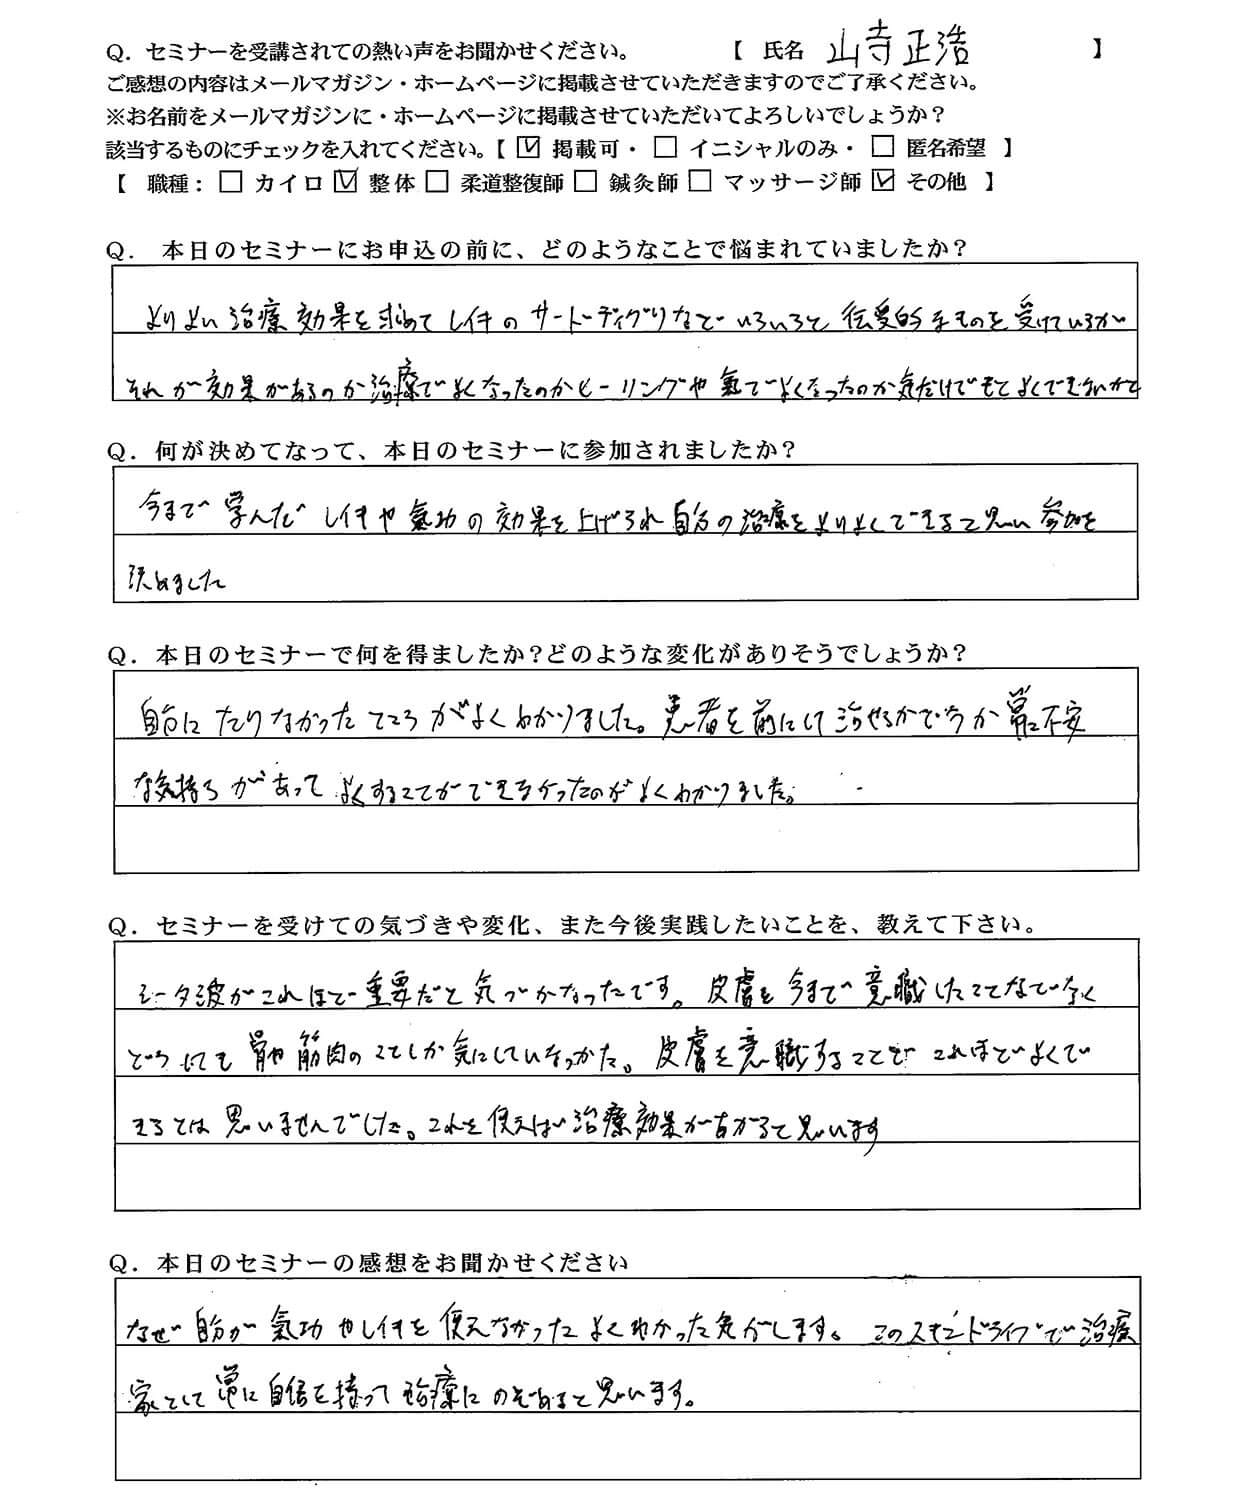 Q．セミナーを受講されての熱い声をお聞かせください。　【　氏名　山寺正浩　】
ご感想の内容はメールマガジン・ホームページに掲載させていただきますのでご了承ください。
※お名前をメールマガジンに・ホームページに掲載させていただいてよろしいでしょうか？
該当するものにチェックを入れてください。【 ☑ 掲載可・ □ イニシャルのみ・ □ 匿名希望 】
【 職種： □ カイロ ☑ 整体 □ 柔道整復師 □ 鍼灸師 □ マッサージ師 ☑ その他 】
Q． 本日のセミナーにお申込の前に、どのようなことで悩まれていましたか？
よりよい治療効果を求めてレイキのサードディグリなど いろいろと 伝受的なものを受けているが
それが効果があるのか治療でよくなったのかヒーリングや氣でよくなったのか気だけでもてよくできないかと
Q．何が決めてなって、本日のセミナーに参加されましたか？
今まで学んだ レイキや氣功の効果を上げられ自分の治療をよりよくできると思い 参加を
決めました
Q．本日のセミナーで何を得ましたか？どのような変化がありそうでしょうか？
自分にたりなかったところがよくわかりました。患者を前にして治せるかどうか常に不安
な気持ちがあって よくすることができなかったのがよくわかりました。
Q．セミナーを受けての気づきや変化、また今後実践したいことを、教えて下さい。
シータ波がこれほど重要だと気づかなったです。皮膚を今まで意職したことなどなく
どうしても骨や筋肉のことしか気にしていなっかた。皮膚を意職することで これほどよくで
きるとは思いませんでした。これを使えば治療効果が上がると思います
Q．本日のセミナーの感想をお聞かせください
なぜ自分が氣功やレイキを使えなかったよくわかった気がします。このスキンドライブで治療
家として常に自信を持って治療にのぞめると思います。